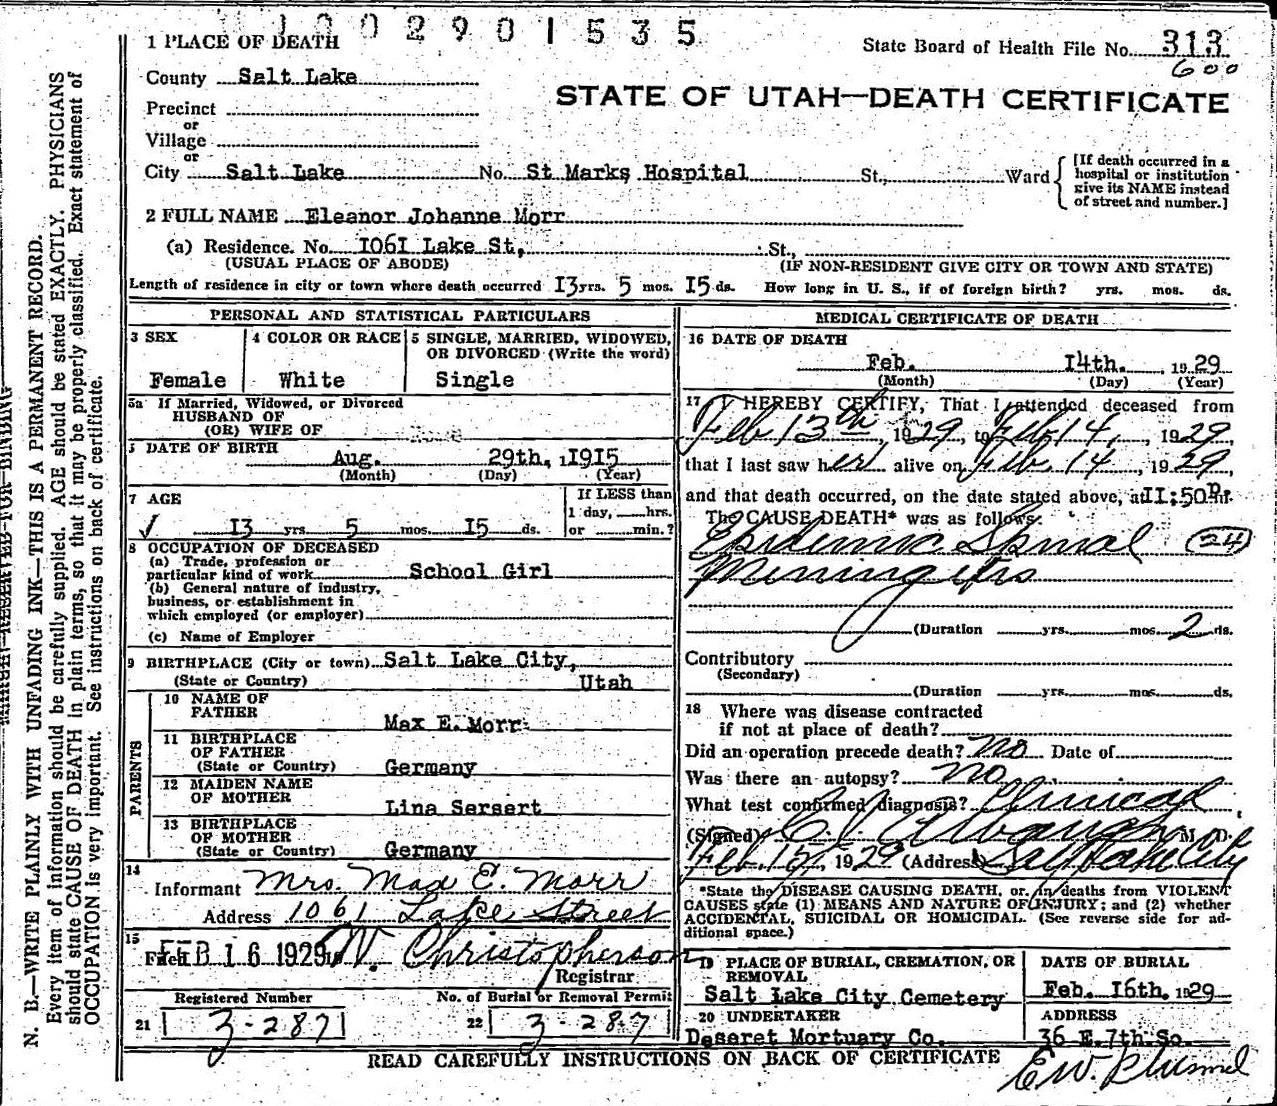 1002901535
1 PLACE OF DEATH
State Board of Health File No. 313
600
County Salt Lake
STATE OF UTAH—DEATH CERTIFICATE
Precinct
or
Village
or
City Salt Lake No. St Marks Hospital St., Ward
[If death occurred in a hospital or institution give its NAME instead of street and number.]
2 FULL NAME Eleanor Johanne Morr
(a) Residence. No. 1061 Lake St, St.,
(USUAL PLACE OF ABODE) (IF NON-RESIDENT GIVE CITY OR TOWN AND STATE)
Length of residence in city or town where death occurred 13 yrs. 5 mos. 15 ds. How long in U. S., if of foreign birth? yrs. mos. ds.
PERSONAL AND STATISTICAL PARTICULARS
3 SEX
Female
4 COLOR OR RACE
White
5 SINGLE, MARRIED, WIDOWED, OR DIVORCED (Write the word)
Single
5a If Married, Widowed, or Divorced
HUSBAND OF
(OR) WIFE OF
DATE OF BIRTH
Aug. 29th, 1915
(Month) (Day) (Year)
7 AGE
13 yrs. 5 mos. 15 ds.
If LESS than
1 day, hrs.
or min.?
8 OCCUPATION OF DECEASED
(a) Trade, profession or
particular kind of work School Girl
(b) General nature of industry,
business, or establishment in
which employed (or employer)
(c) Name of Employer
9 BIRTHPLACE (City or town) Salt Lake City,
(State or Country) Utah
PARENTS
10 NAME OF
FATHER Max E. Morr
11 BIRTHPLACE
OF FATHER
(State or Country) Germany
12 MAIDEN NAME
OF MOTHER Lina Sersert
13 BIRTHPLACE
OF MOTHER
(State or Country) Germany
14
Informant Mrs. Max E. Morr
Address 1061 Lake Street
15
Filed FEB 16 1929 W. Christopherson
Registrar
Registered Number
21 3-287
No. of Burial or Removal Permit
22 3-287
MEDICAL CERTIFICATE OF DEATH
16 DATE OF DEATH
Feb. 14th. 1929
(Month) (Day) (Year)
17 I HEREBY CERTIFY, That I attended deceased from
Feb 13th, 1929, to Feb 14, 1929,
that I last saw her alive on Feb 14, 1929
and that death occurred, on the date stated above, at 11:50 P.M.
The CAUSE DEATH* was as follows:
Epidemic Spinal (24)
Meningitis
(Duration yrs. mos. 2 ds.
Contributory
(Secondary)
(Duration yrs. mos. ds.
18 Where was disease contracted
if not at place of death?
Did an operation precede death? No Date of
Was there an autopsy? No
What test confirmed diagnosis? Clinical
(Signed) M. D.
Feb 15, 1929 (Address) Salt Lake City
*State the DISEASE CAUSING DEATH, or, in deaths from VIOLENT
CAUSES state (1) MEANS AND NATURE OF INJURY; and (2) whether
ACCIDENTAL, SUICIDAL OR HOMICIDAL. (See reverse side for ad-
ditional space.)
19 PLACE OF BURIAL, CREMATION, OR
REMOVAL
Salt Lake City Cemetery
DATE OF BURIAL
Feb. 16th. 1929
20 UNDERTAKER
Deseret Mortuary Co.
ADDRESS
36 E. 7th So.
READ CAREFULLY INSTRUCTIONS ON BACK OF CERTIFICATE
E. W.
MARGIN RESERVED FOR BINDING
N. B.—WRITE PLAINLY WITH UNFADING INK—THIS IS A PERMANENT RECORD.
Every item of information should be carefully supplied. AGE should be stated EXACTLY. PHYSICIANS
should state CAUSE OF DEATH in plain terms, so that it may be properly classified. Exact statement of
OCCUPATION is very important. See instructions on back of certificate.